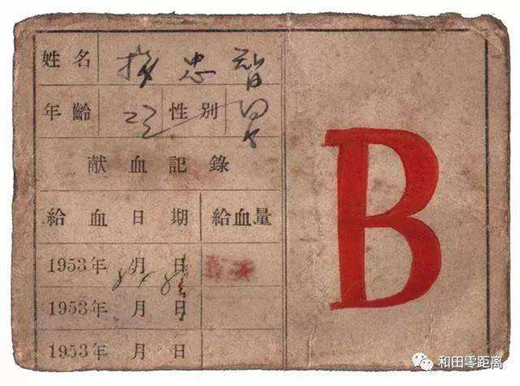 姓名 忠智
年齡 23 性别 男
献血記錄
給血日期 給血量
1953年8月8日
1953年 月 日
1953年 月 日
B
和田零距离